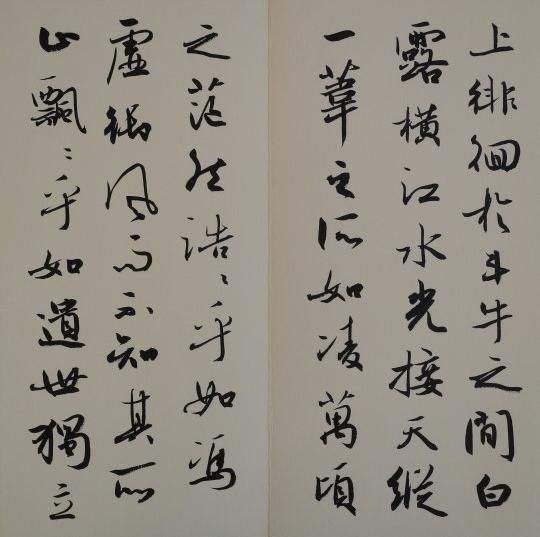 上徘徊於斗牛之間白
露橫江水光接天縱
一葦之所如凌萬頃
之茫然浩〻乎如馮
虛御風而不知其所
止飄〻乎如遺世獨立